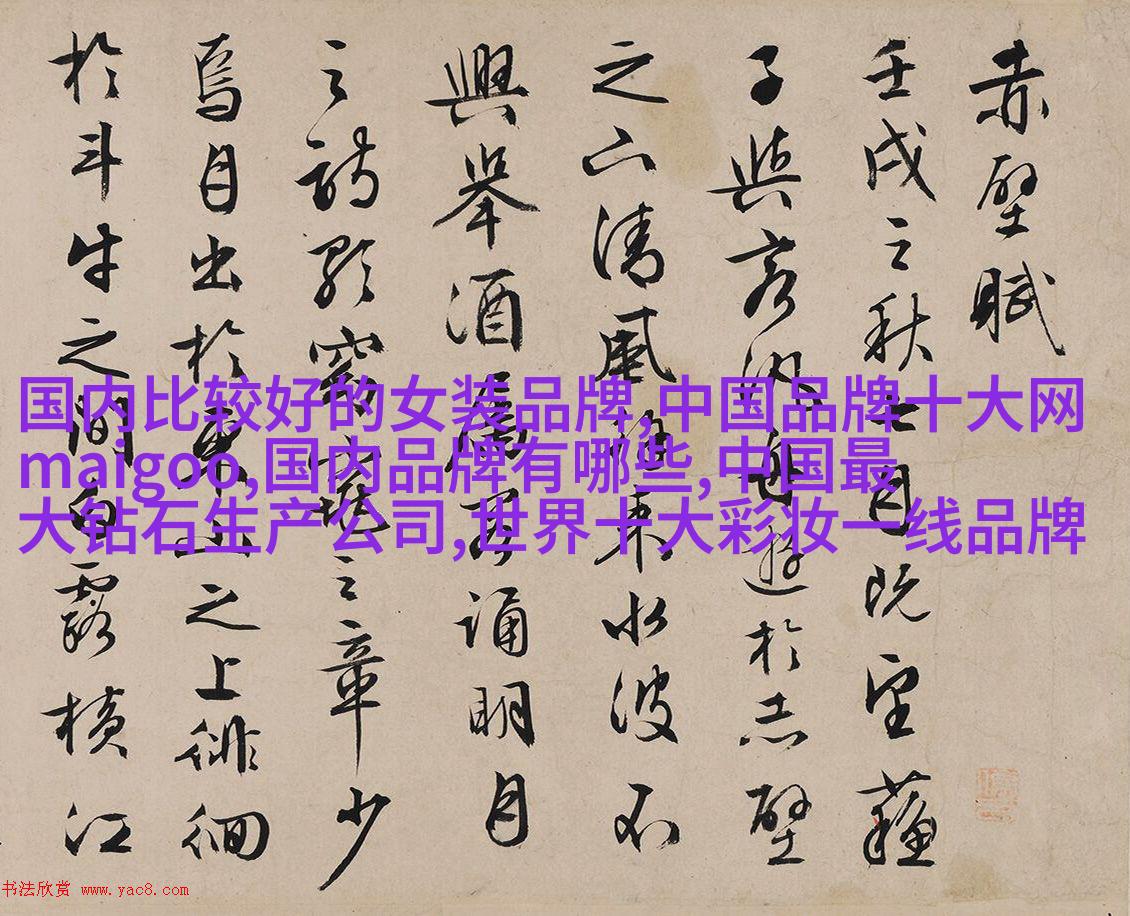 赤壁賦
壬戌之秋七月既望蘇
子與客汎舟遊於赤壁
之下清風徐來水波不
興舉酒屬客誦明月
之詩歌窈窕之章少
焉月出於東山之上徘徊
於斗牛之間白露橫江
国内比较好的女装品牌,中国品牌十大网
maigoo,国内品牌有哪些,中国最
大钻石生产公司,世界十大彩妆一线品牌
书法欣赏 www.yac8.com